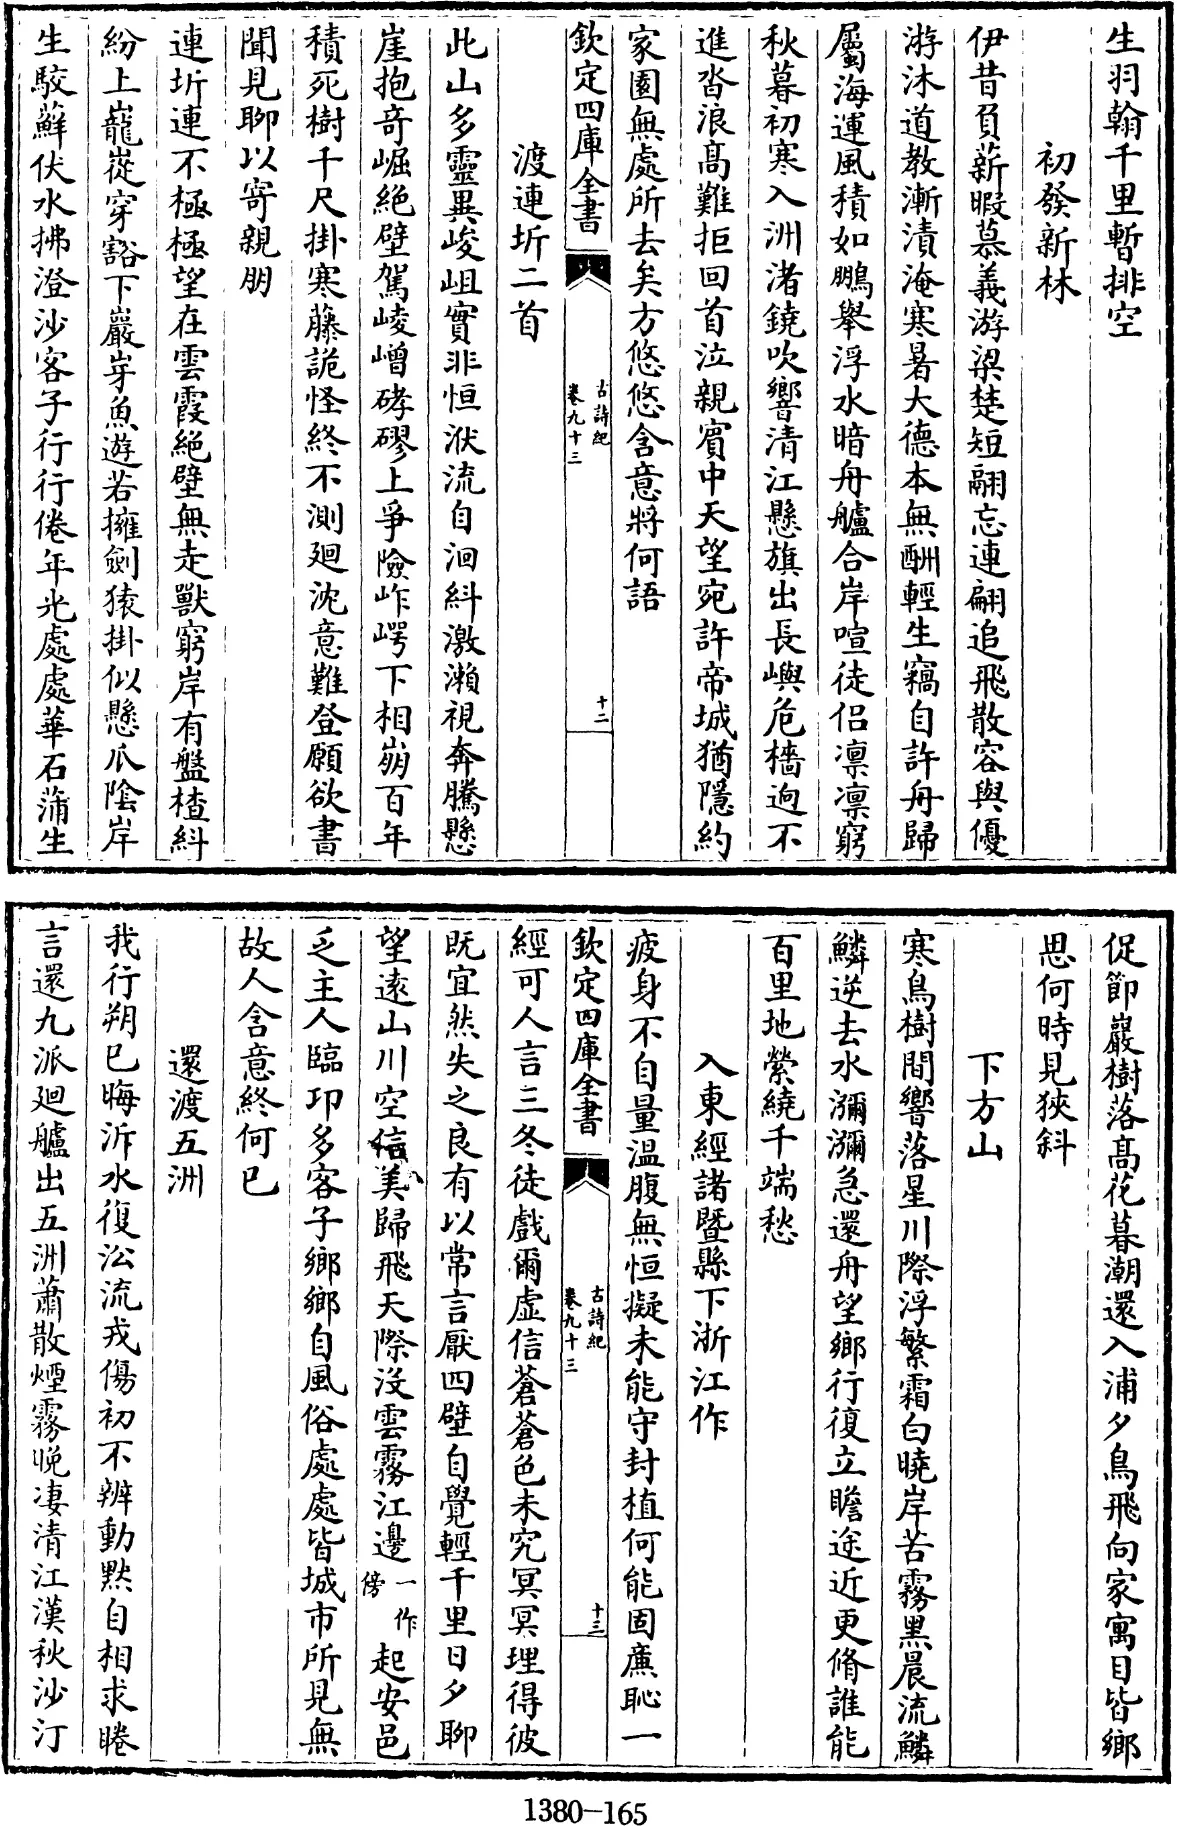 生羽翰千里暫排空
初發新林
伊昔負薪暇慕義游梁楚短翮忘連翩追飛散容與優
游沐道教漸漬淹寒暑大德本無酬輕生竊自許舟歸
屬海運風積如鵬舉浮水暗舟艫合岸喧徒侶凛凛窮
秋暮初寒入洲渚鐃吹響清江懸旗出長嶼危檣逈不
進沓浪髙難拒回首泣親賓中天望宛許帝城猶隱約
家園無處所去矣方悠悠含意將何語
欽定四庫全書
古詩紀
卷九十三
十二
渡連圻二首
此山多靈異峻岨實非恒洑流自洄糾激瀨視奔騰懸
崖抱奇崛絶壁駕崚嶒硣磟上爭險岞崿下相崩百年
積死樹千尺掛寒藤詭怪終不測廻沈意難登願欲書
聞見聊以寄親朋
連圻連不極極望在雲霞絶壁無走獸窮岸有盤楂糾
紛上巃嵸穿豁下巖岈魚遊若擁劍猿掛似懸瓜陰岸
生駮蘚伏水拂澄沙客子行行倦年光處處華石蒲生
促節巖樹落髙花暮潮還入浦夕鳥飛向家寓目皆鄉
思何時見狹斜
下方山
寒鳥樹間響落星川際浮繁霜白曉岸苦霧黒晨流鱗
鱗逆去水瀰瀰急還舟望鄉行復立瞻途近更脩誰能
百里地縈繞千端愁
入東經諸暨縣下浙江作
疲身不自量温腹無恒擬未能守封植何能固亷恥一
欽定四庫全書
古詩紀
卷九十三
十三
經可人言三冬徒戲爾虚信蒼蒼色未究冥冥理得彼
既宜然失之良有以常言厭四壁自覺輕千里日夕聊
望遠山川空信美歸飛天際没雲霧江邊一作傍起安邑
乏主人臨卭多客子鄉鄉自風俗處處皆城市所見無
故人含意終何已
還渡五洲
我行朔已晦泝水復㳂流戎傷初不辨動黙自相求睠
言還九派廻艫出五洲蕭散煙霧晩凄清江漢秋沙汀
1380-165